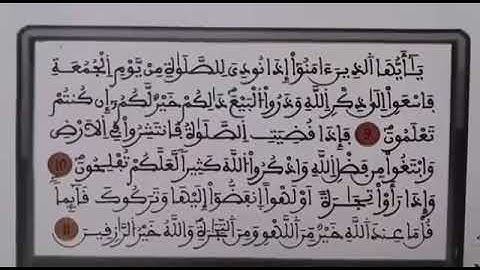 يَٰٓأَيُّهَا اَلذِينَ ءَامَنُوٓاْ إِذَا نُودِيَ لِلصَّلَوٰةِ مِنْ يَّوْمِ اِلْجُمُعَةِ
فَاسْعَوِاْ اِلَىٰ ذِكْرِ اِللَّهِ وَذَرُواْ اُلْبَيْعَ ذَٰلِكُمْ خَيْرٌ لَّكُمُۥٓ إِن كُنتُمْ
تَعْلَمُونَ 9 فَإِذَا قُضِيَتِ اِلصَّلَوٰةُ فَانتَشِرُواْ فِي اِلَارْضِ
وَابْتَغُواْ مِن فَضْلِ اِللَّهِ وَاذْكُرُواْ اُللَّهَ كَثِيراً لَّعَلَّكُمْ تُفْلِحُونَ 10
وَإِذَا رَأَوْاْ تِجَٰرَةً اَوْ لَهْواً اِنفَضُّوٓاْ إِلَيْهَا وَتَرَكُوكَ قَآئِماً
قُلْ مَا عِندَ اَللَّهِ خَيْرٌ مِّنَ اَللَّهْوِ وَمِنَ اَلتِّجَٰرَةِ وَاللَّهُ خَيْرُ اُلرَّٰزِقِينَ 11